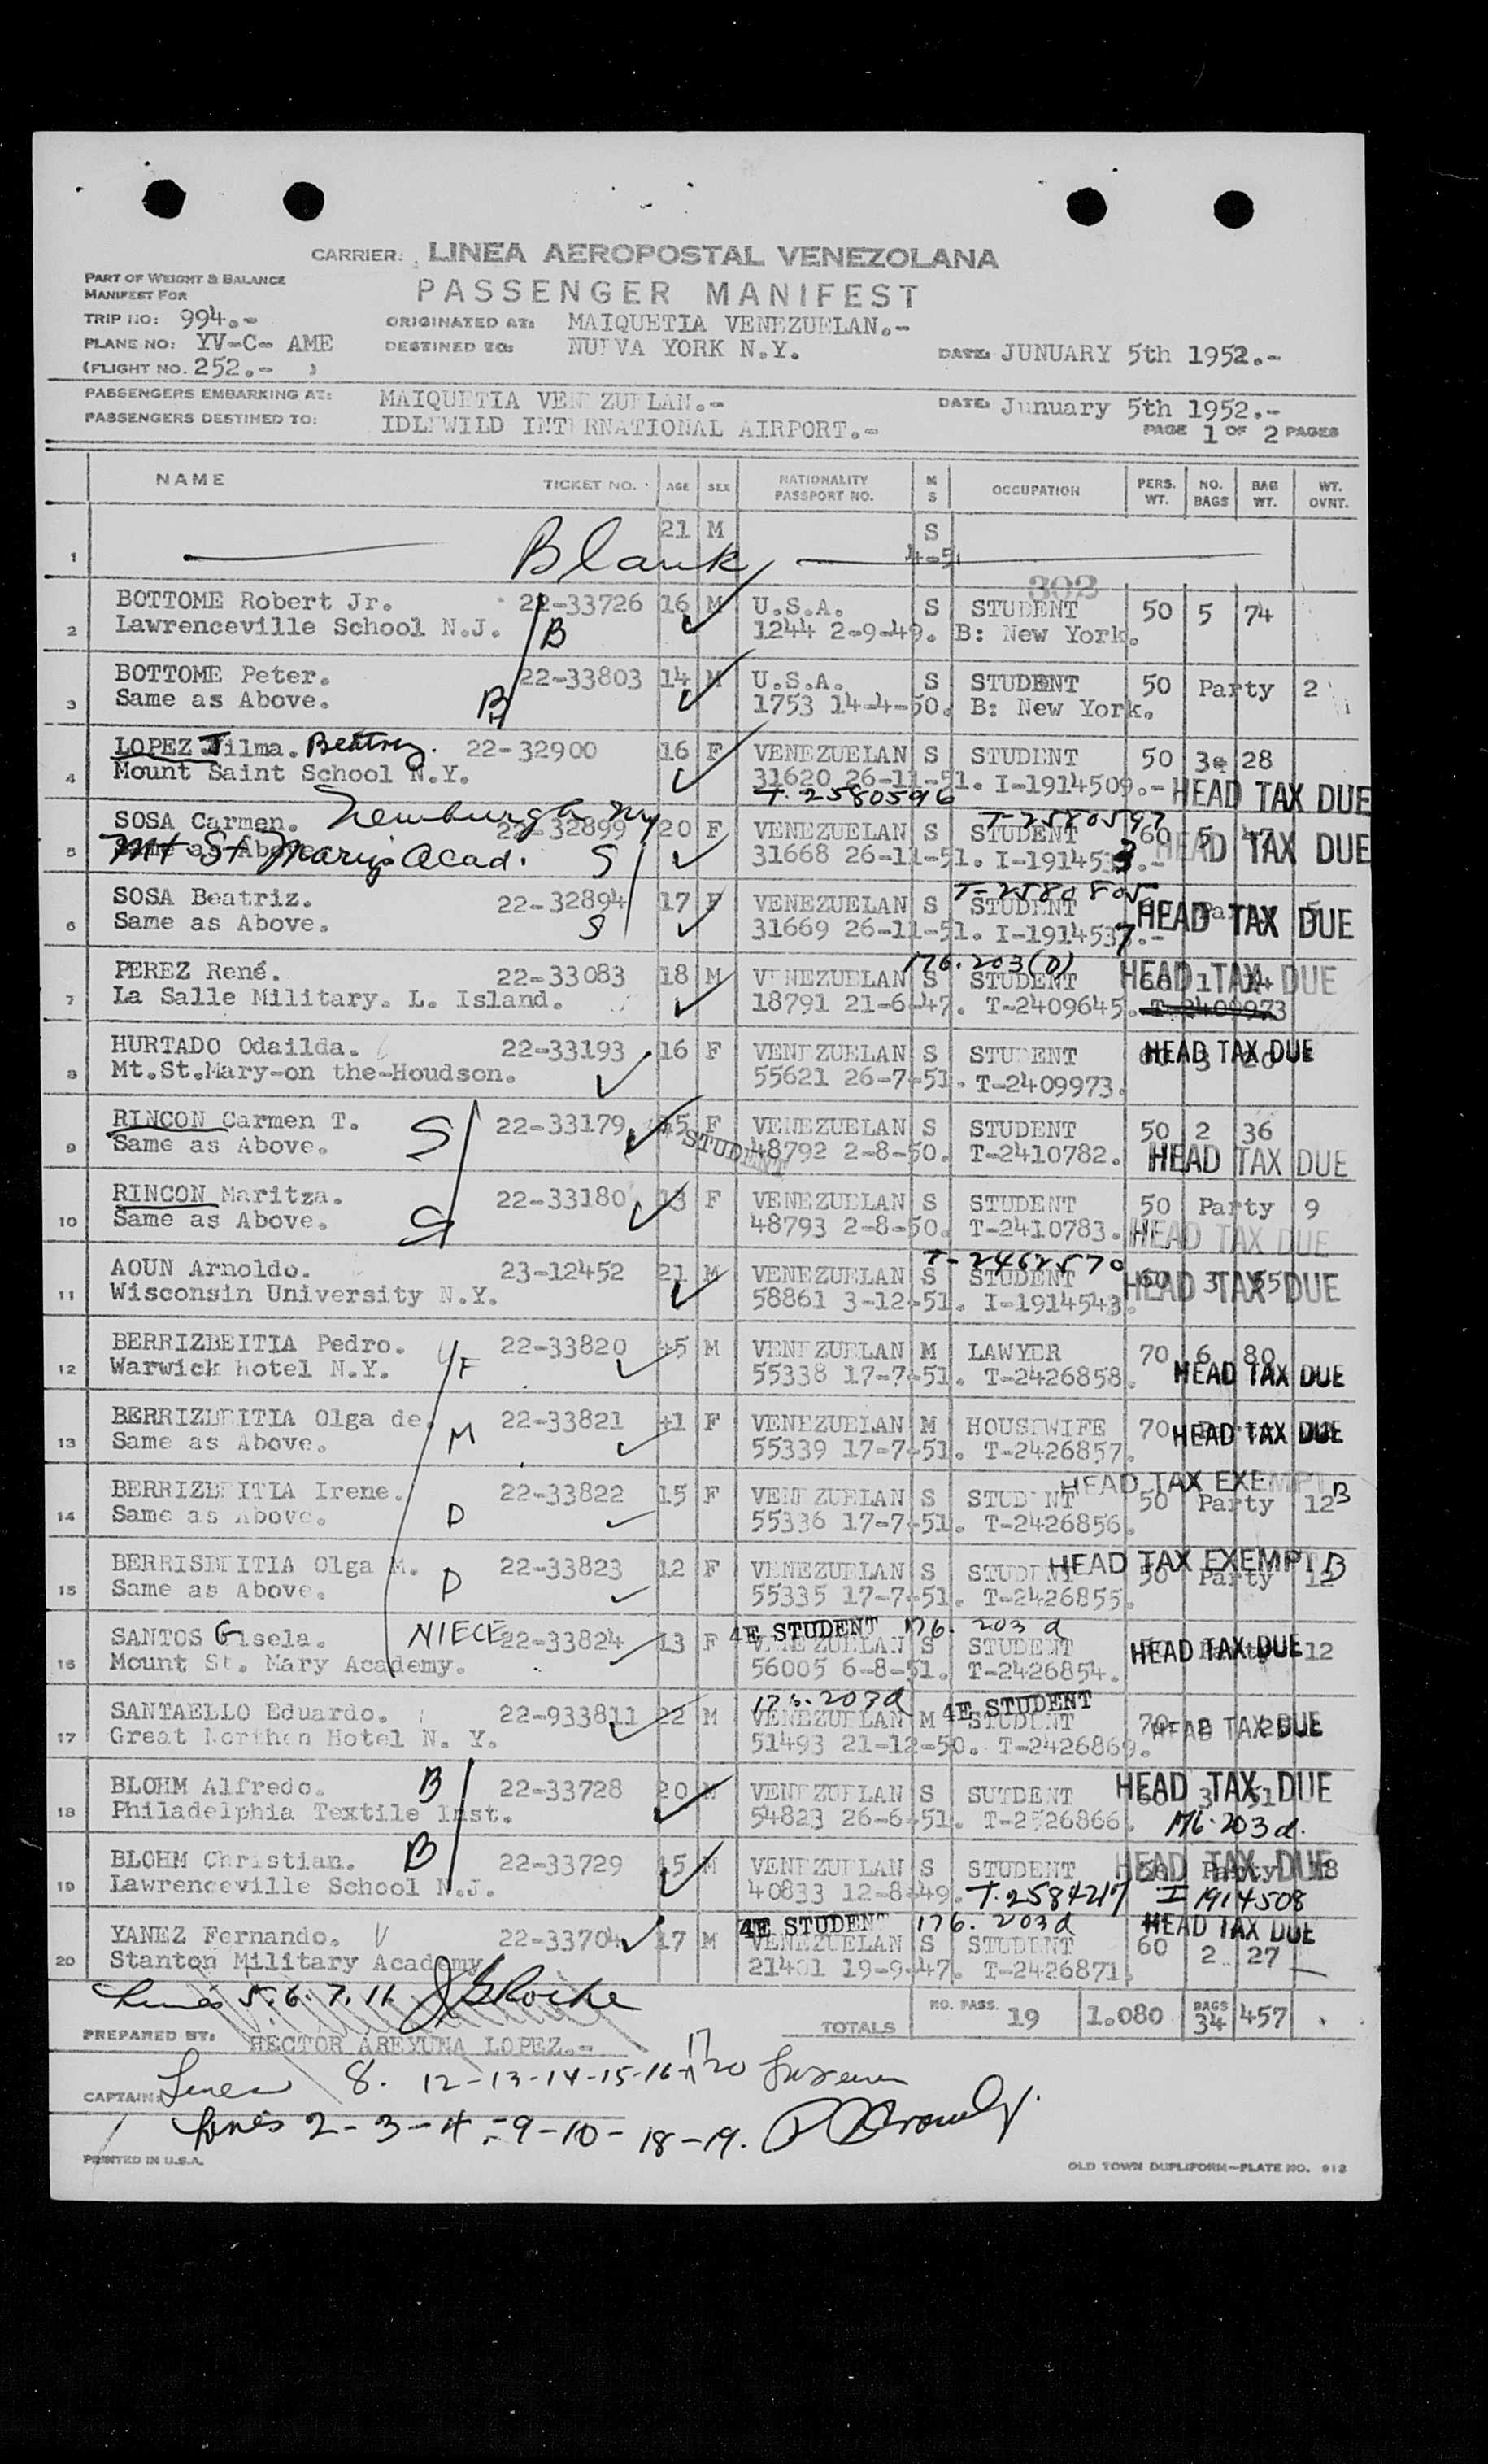 CARRIER: LINEA AEROPOSTAL VENEZOLANA
PART OF WEIGHT & BALANCE
MANIFEST FOR
PASSENGER MANIFEST
TRIP NO: 994.-
ORIGINATED AT: MAIQUETIA VENEZUELAN.-
PLANE NO: YV-C- AME
DESTINED TO: NUEVA YORK N.Y.
DATE: JUNUARY 5th 1952.-
(FLIGHT NO. 252.- )
PASSENGERS EMBARKING AT: MAIQUETIA VENEZUELAN.-
DATE: Junuary 5th 1952.-
PASSENGERS DESTINED TO: IDLEWILD INTERNATIONAL AIRPORT.-
PAGE 1 OF 2 PAGES
NAME TICKET NO. AGE SEX NATIONALITY PASSPORT NO. M S OCCUPATION PERS. WT. NO. BAGS BAG WT. WT. OVNT.
21 M S
1 Blank 4-51
302
BOTTOME Robert Jr. 22-33726 16 M U.S.A. S STUDENT 50 5 74
2 Lawrenceville School N.J. B 1244 2-9-49. B: New York.
BOTTOME Peter. 22-33803 14 M U.S.A. S STUDENT 50 Party 2
3 Same as Above. B 1753 14-4-50. B: New York.
LOPEZ Tilma. Beatriz. 22-32900 16 F VENEZUELAN S STUDENT 50 3 28
4 Mount Saint School N.Y. 31620 26-11-51. I-1914509.- HEAD TAX DUE
T. 2580596
Newburgh NY T-2580597
SOSA Carmen. 22-32899 20 F VENEZUELAN S STUDENT 60 5 47 HEAD TAX DUE
5 Same as Above. Mt St Marys Acad. S 31668 26-11-51. I-1914533.-
T-2580805
SOSA Beatriz. 22-32894 17 F VENEZUELAN S STUDENT HEAD TAX DUE
6 Same as Above. S 31669 26-11-51. I-1914537.-
176.203(D)
PEREZ René. 22-33083 18 M VENEZUELAN S STUDENT 60 1 14 HEAD TAX DUE
7 La Salle Military. L. Island. 18791 21-6-47. T-2409645. T-2409973
HURTADO Odailda. 22-33193 16 F VENEZUELAN S STUDENT 3 20 HEAD TAX DUE
8 Mt.St.Mary-on the-Houdson. 55621 26-7-51. T-2409973.
RINCON Carmen T. S 22-33179 15 F VENEZUELAN S STUDENT 50 2 36
9 Same as Above. STUDENT 48792 2-8-50. T-2410782. HEAD TAX DUE
RINCON Maritza. 22-33180 13 F VENEZUELAN S STUDENT 50 Party 9
10 Same as Above. S 48793 2-8-50. T-2410783. HEAD TAX DUE
T-2462570
AOUN Arnoldo. 23-12452 21 M VENEZUELAN S STUDENT 60 3 HEAD TAX DUE
11 Wisconsin University N.Y. 58861 3-12-51. I-1914543.
BERRIZBEITIA Pedro. F 22-33820 45 M VENEZUELAN M LAWYER 70 6 80
12 Warwick hotel N.Y. 55338 17-7-51. T-2426858. HEAD TAX DUE
BERRIZBEITIA Olga de. 22-33821 41 F VENEZUELAN M HOUSEWIFE 70 HEAD TAX DUE
13 Same as Above. M 55339 17-7-51. T-2426857.
HEAD TAX EXEMPT
BERRIZBEITIA Irene. 22-33822 15 F VENEZUELAN S STUDENT 50 Party 12 B
14 Same as Above. D 55336 17-7-51. T-2426856.
HEAD TAX EXEMPT B
BERRISBEITIA Olga M. 22-33823 12 F VENEZUELAN S STUDENT 50 Party 12
15 Same as Above. D 55335 17-7-51. T-2426855.
4E STUDENT 176. 203 d
SANTOS Gisela. NIECE 22-33824 13 F VENEZUELAN S STUDENT HEAD TAX DUE 12
16 Mount St. Mary Academy. 56005 6-8-51. T-2426854.
176.203d 4E STUDENT
SANTAELLO Eduardo. 22-933811 22 M VENEZUELAN M STUDENT 70 2 HEAD TAX DUE
17 Great Northen Hotel N. Y. 51493 21-12-50. T-2426869.
BLOHM Alfredo. B 22-33728 20 M VENEZUELAN S SUTDENT 60 3 51 HEAD TAX DUE
18 Philadelphia Textile Inst. 54823 26-6-51. T-2526866. 176.203d.
BLOHM Christian. B 22-33729 15 M VENEZUELAN S STUDENT Party HEAD TAX DUE
19 Lawrenceville School N.J. 40833 12-8-49. T.2584217 I 1914508
4E STUDENT 176. 203d HEAD TAX DUE
YANEZ Fernando. 22-33704 17 M VENEZUELAN S STUDENT 60 2 27
20 Stanton Military Academy 21401 19-9-47. T-2426871.
Lines 5.6.7.11
TOTALS NO. PASS. 19 1.080 BAGS 34 457
PREPARED BY: HECTOR AREYUNA LOPEZ.-
CAPTAIN: Lines 8. 12-13-14-15-16-17 20
Lines 2-3-4-9-10-18-19.
PRINTED IN U.S.A.
OLD TOWN DUPLIFORM-PLATE NO. 912